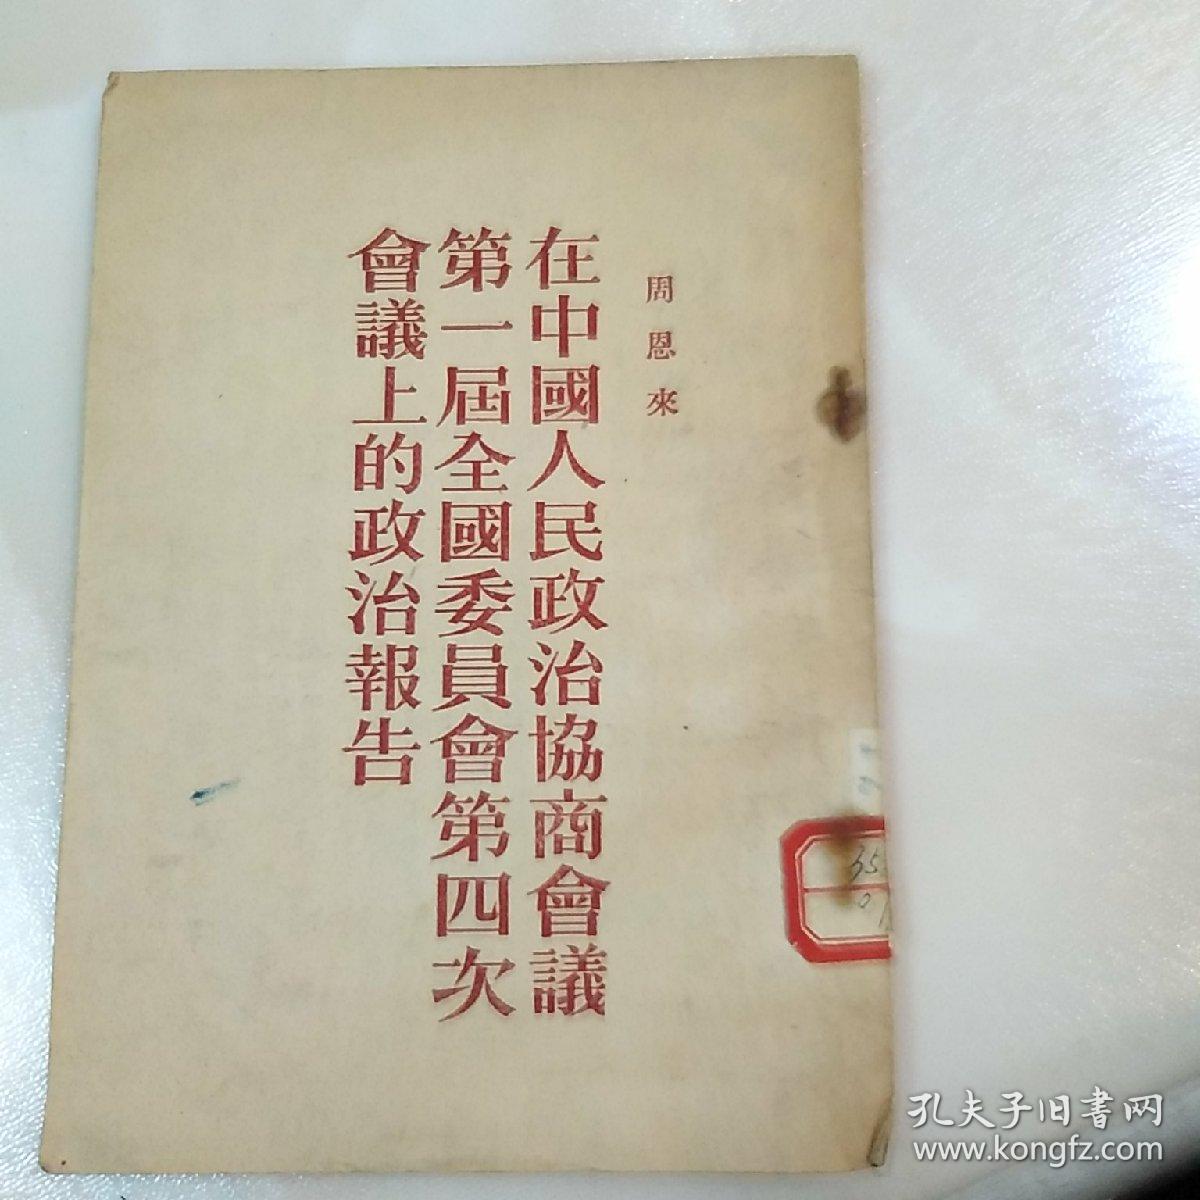 周恩來
在中國人民政治協商會議
第一屆全國委員會第四次
會議上的政治報告
孔夫子旧書网
www.kongfz.com